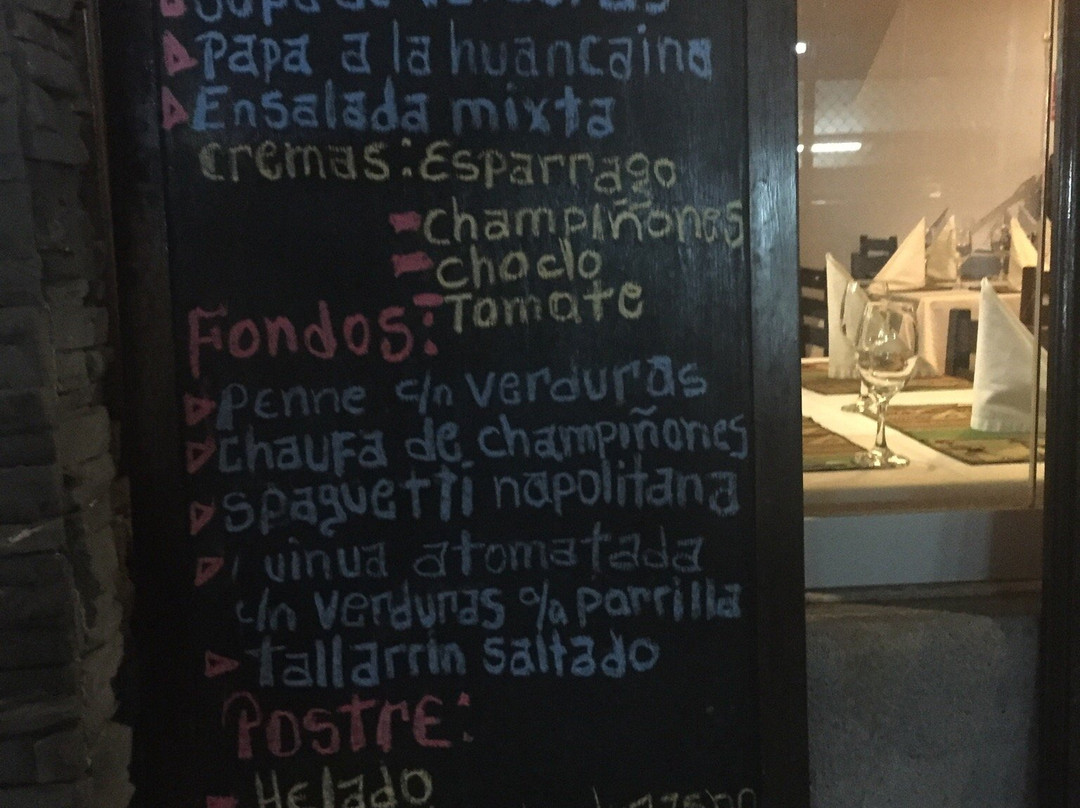 Sopa de verduras
Papa a la huancaina
Ensalada mixta
cremas: Esparrago
champiñones
choclo
Tomate
Fondos:
Penne c/n verduras
Chaufa de champiñones
Spaguetti napolitana
uinua atomatada
c/n verduras a/a parrilla
tallarrin saltado
Postre:
Helado